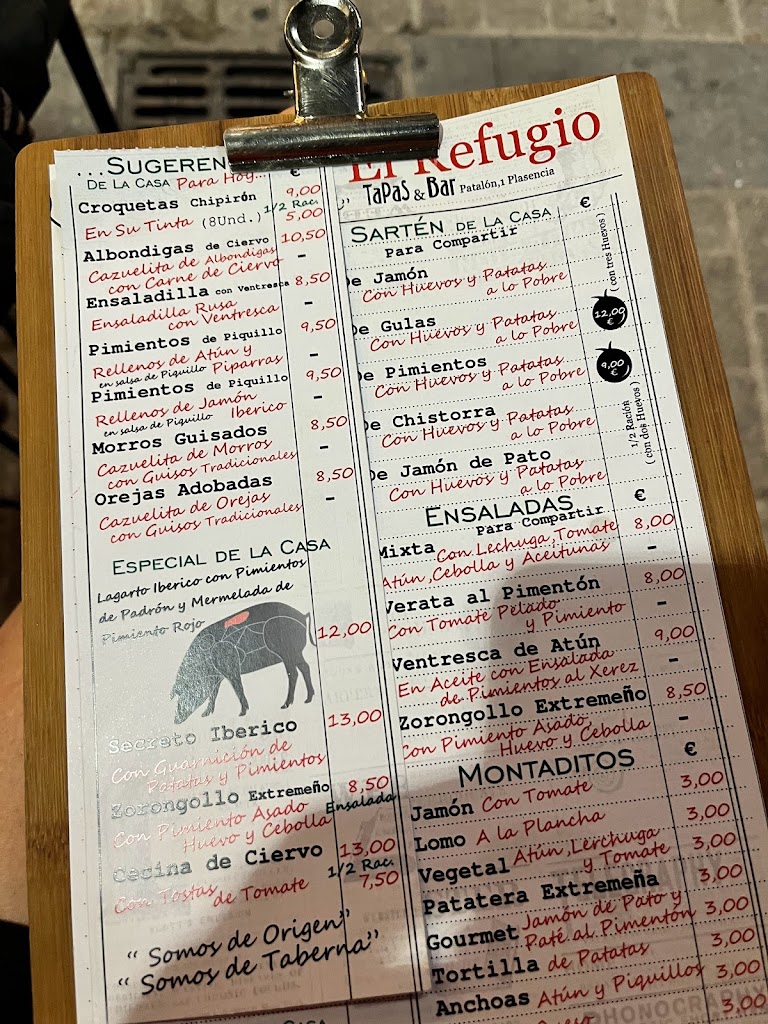 ...SUGEREN
DE LA CASA Para Hoy... €
Croquetas Chipirón 9,00
1/2 Rac.
En Su Tinta (8Und.) 5,00
Albondigas de Ciervo 10,50
Cazuelita de Albondigas -
con Carne de Ciervo
Ensaladilla con Ventresca 8,50
Ensaladilla Rusa -
con Ventresca
Pimientos de Piquillo 9,50
Rellenos de Atún y -
en salsa de Piquillo Piparras
Pimientos de Piquillo 9,50
Rellenos de Jamón -
en salsa de Piquillo Iberico
Morros Guisados 8,50
Cazuelita de Morros -
con Guisos Tradicionales
Orejas Adobadas 8,50
Cazuelita de Orejas -
con Guisos Tradicionales
ESPECIAL DE LA CASA
Lagarto Iberico con Pimientos
de Padrón y Mermelada de
Pimiento Rojo
12,00
Secreto Iberico 13,00
Con Guarnición de
Patatas y Pimientos
Zorongollo Extremeño 8,50
Con Pimiento Asado Ensalada
Huevo y Cebolla
Cecina de Ciervo 13,00
1/2 Rac.
Con Tostas de Tomate 7,50
“ Somos de Origen”
“ Somos de Taberna”
El Refugio
TaPaS & Bar Patalón,1 Plasencia
SARTÉN DE LA CASA €
Para Compartir
De Jamón
Con Huevos y Patatas
a lo Pobre
De Gulas
Con Huevos y Patatas
a lo Pobre
De Pimientos
Con Huevos y Patatas
a lo Pobre
De Chistorra
Con Huevos y Patatas
a lo Pobre
De Jamón de Pato
Con Huevos y Patatas
a lo Pobre
( con tres Huevos )
12,00
€
9,00
€
1/2 Ración
( con dos Huevos )
ENSALADAS €
Para Compartir
Mixta Con Lechuga,Tomate 8,00
Atún,Cebolla y Aceitunas -
Verata al Pimentón 8,00
Con Tomate Pelado -
y Pimiento
Ventresca de Atún 9,00
En Aceite con Ensalada -
de Pimientos al Xerez
Zorongollo Extremeño 8,50
Con Pimiento Asado, -
Huevo y Cebolla
MONTADITOS €
Jamón Con Tomate 3,00
Lomo A la Plancha 3,00
Vegetal Atún,Lerchuga 3,00
y Tomate
Patatera Extremeña 3,00
Gourmet Jamón de Pato y 3,00
Paté al Pimentón
Tortilla de Patatas 3,00
Anchoas Atún y Piquillos 3,00